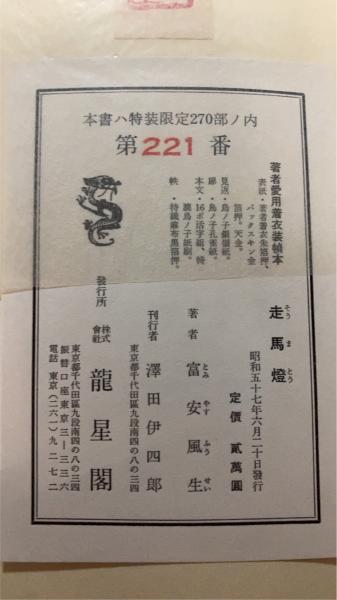 本書ハ特装限定270部ノ内
第221番
著者愛用着衣装幀本
表紙・著者着衣朱箔押、
バックスキン金
箔押。天金。
見返・鳥ノ子銀揉紙。
扉・鳥ノ子孔雀紙。
本文・16ポ活字組、特
漉鳥ノ子紙刷。
帙・特織麻布黒箔押。
走馬燈
そうまとう
昭和五十七年六月二十日發行
定價 貳萬圓
著者 富安風生
とみやすふうせい
刊行者 澤田伊四郎
東京都千代田區九段南四の八の三四
發行所 株式會社 龍星閣
東京都千代田區九段南四の八の三四
振替口座東京三―三三六
電話 東京(二六一)九二七二